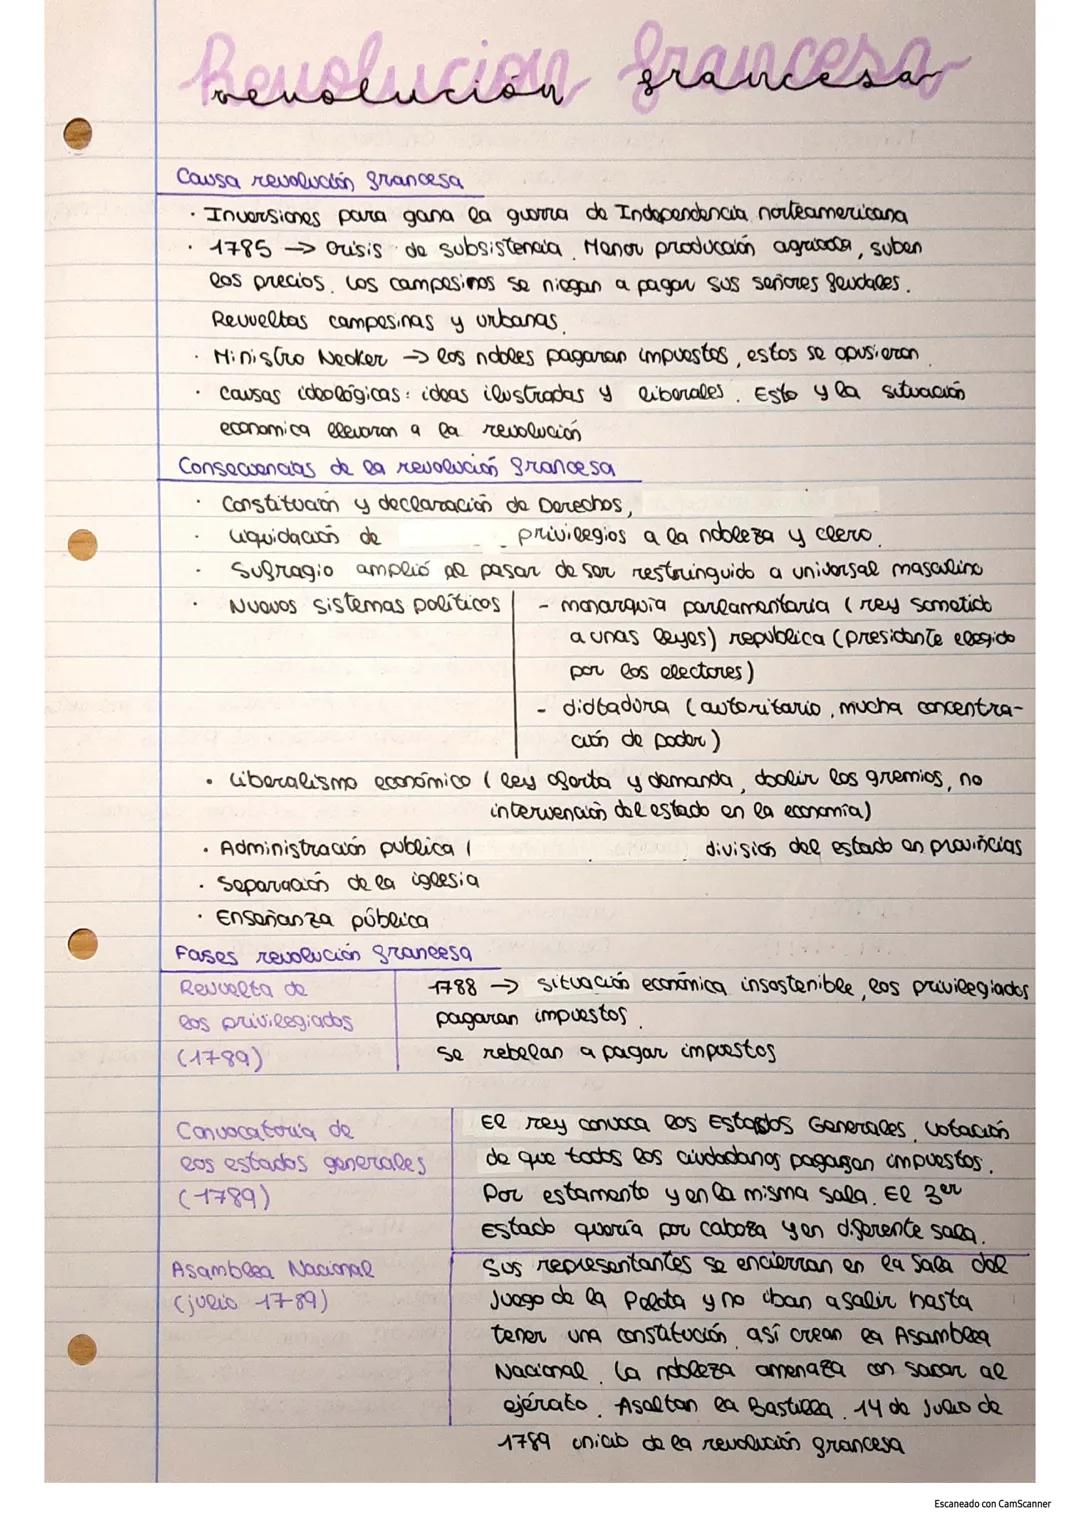 Revolución francesa
revolución francesa
Causa revolución francesa
· Inversiones para gana la guerra de Independencia norteamericana
· 1785 → crisis de subsistencia. Menor producción agrícola, suben
los precios. Los campesinos se niegan a pagar sus señores feudales.
Revueltas campesinas y urbanas.
· Ministro Necker → los nobles pagaran impuestos, estos se opusieron
· Causas ideológicas: ideas ilustradas y liberales. Esto y la situación
economica llevaron a la revolución
Consecuencias de la revolución francesa
· Constitución y declaración de Derechos,
· Liquidación de privilegios a la nobleza y clero.
· Sufragio amplió al pasar de ser restringuido a universal masculino
· Nuevos sistemas políticos | - monarquía parlamentaria (rey sometido
a unas leyes) republica (presidente elegido
por los electores)
- dictadura (autoritario, mucha concentra-
ción de poder)
· Liberalismo económico (ley oferta y demanda, abolir los gremios, no
intervención del estado en la economía)
· Administración publica ( división del estado en provincias
· Separación de la iglesia
· Enseñanza pública
Fases revolución francesa
Revuelta de
los privilegiados
(1789)
1788 → situación económica insostenible, los privilegiados
pagaran impuestos.
Se rebelan a pagar impuestos
Convocatoria de
los estados generales
(1789)
El rey convoca los Estados Generales, votación
de que todos los ciudadanos pagasen impuestos.
Por estamento y en la misma sala. El 3er
Estado quería por cabeza y en diferente sala.
Asamblea Nacional
(julio 1789)
Sus representantes se encierran en la Sala del
Juego de la Pelota y no iban a salir hasta
tener una constitución, así crean la Asamblea
Nacional. La nobleza amenaza con sacar al
ejército. Asaltan la Bastilla. 14 de Julio de
1789 inicio de la revolución francesa
Escaneado con CamScanner